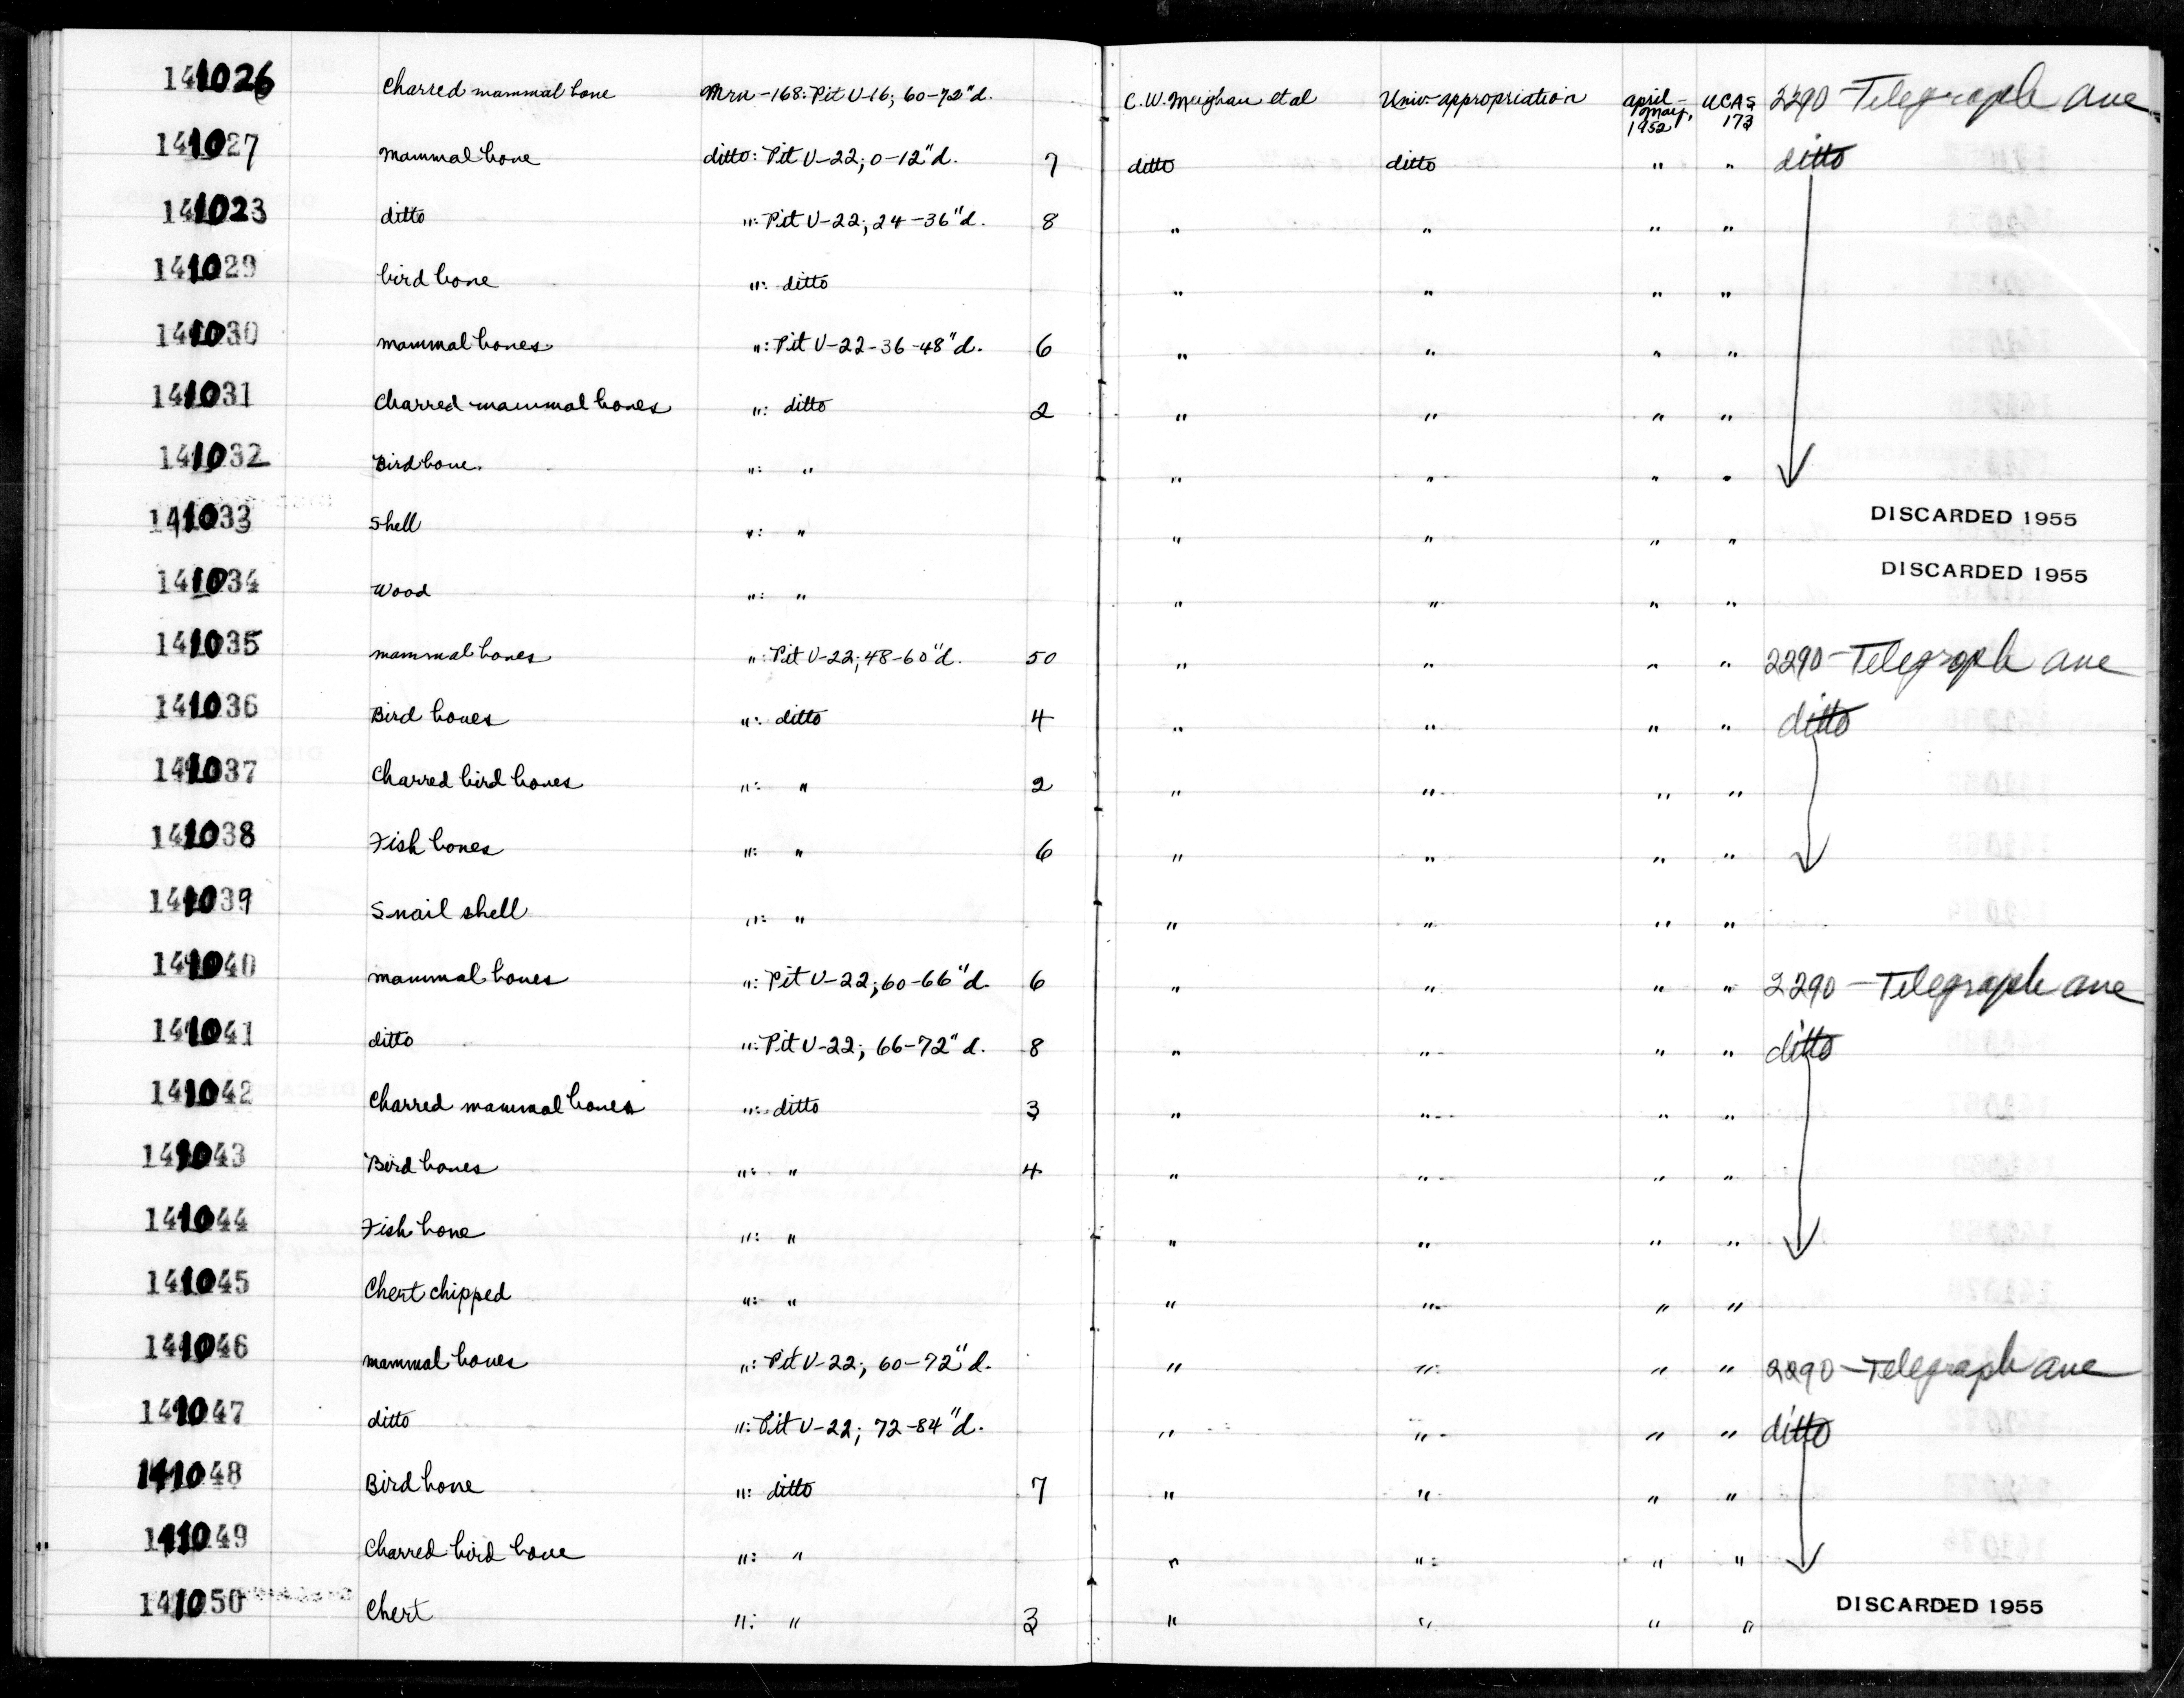 141026 Charred mammal bone Mrn-168: Pit V-16; 60-72"d. C.W. Meighan et al Univ. appropriation april-may, 1952 UCAS 173 2290-Telegraph ave
141027 Mammal bone ditto: Pit V-22; 0-12"d. 7 ditto ditto " " ditto
141028 ditto ": Pit V-22; 24-36"d. 8 " " " "
141029 bird bone ": ditto " " " "
141030 mammal bones ": Pit V-22-36-48"d. 6 " " " "
141031 Charred mammal bones ": ditto 2 " " " "
141032 Bird bone. ": " " " " "
141033 Shell ": " " " " " DISCARDED 1955
141034 Wood ": " " " " " DISCARDED 1955
141035 mammal bones ": Pit V-22; 48-60"d. 50 " " " " 2290-Telegraph ave
141036 Bird bones ": ditto 4 " " " " ditto
141037 Charred bird bones ": " 2 " " " "
141038 Fish bones ": " 6 " " " "
141039 Snail shell ": " " " " "
141040 mammal bones ": Pit V-22; 60-66"d. 6 " " " " 2290-Telegraph ave
141041 ditto ": Pit V-22; 66-72"d. 8 " " " " ditto
141042 Charred mammal bones ": ditto 3 " " " "
141043 Bird bones ": " 4 " " " "
141044 Fish bone ": " " " " "
141045 Chert chipped ": " " " " "
141046 mammal bones ": Pit V-22; 60-72"d. " " " " 2290-Telegraph ave
141047 ditto ": Pit V-22; 72-84"d. " " " " ditto
141048 Bird bone ": ditto 7 " " " "
141049 Charred bird bone ": " " " " "
141050 Chert ": " 3 " " " " DISCARDED 1955